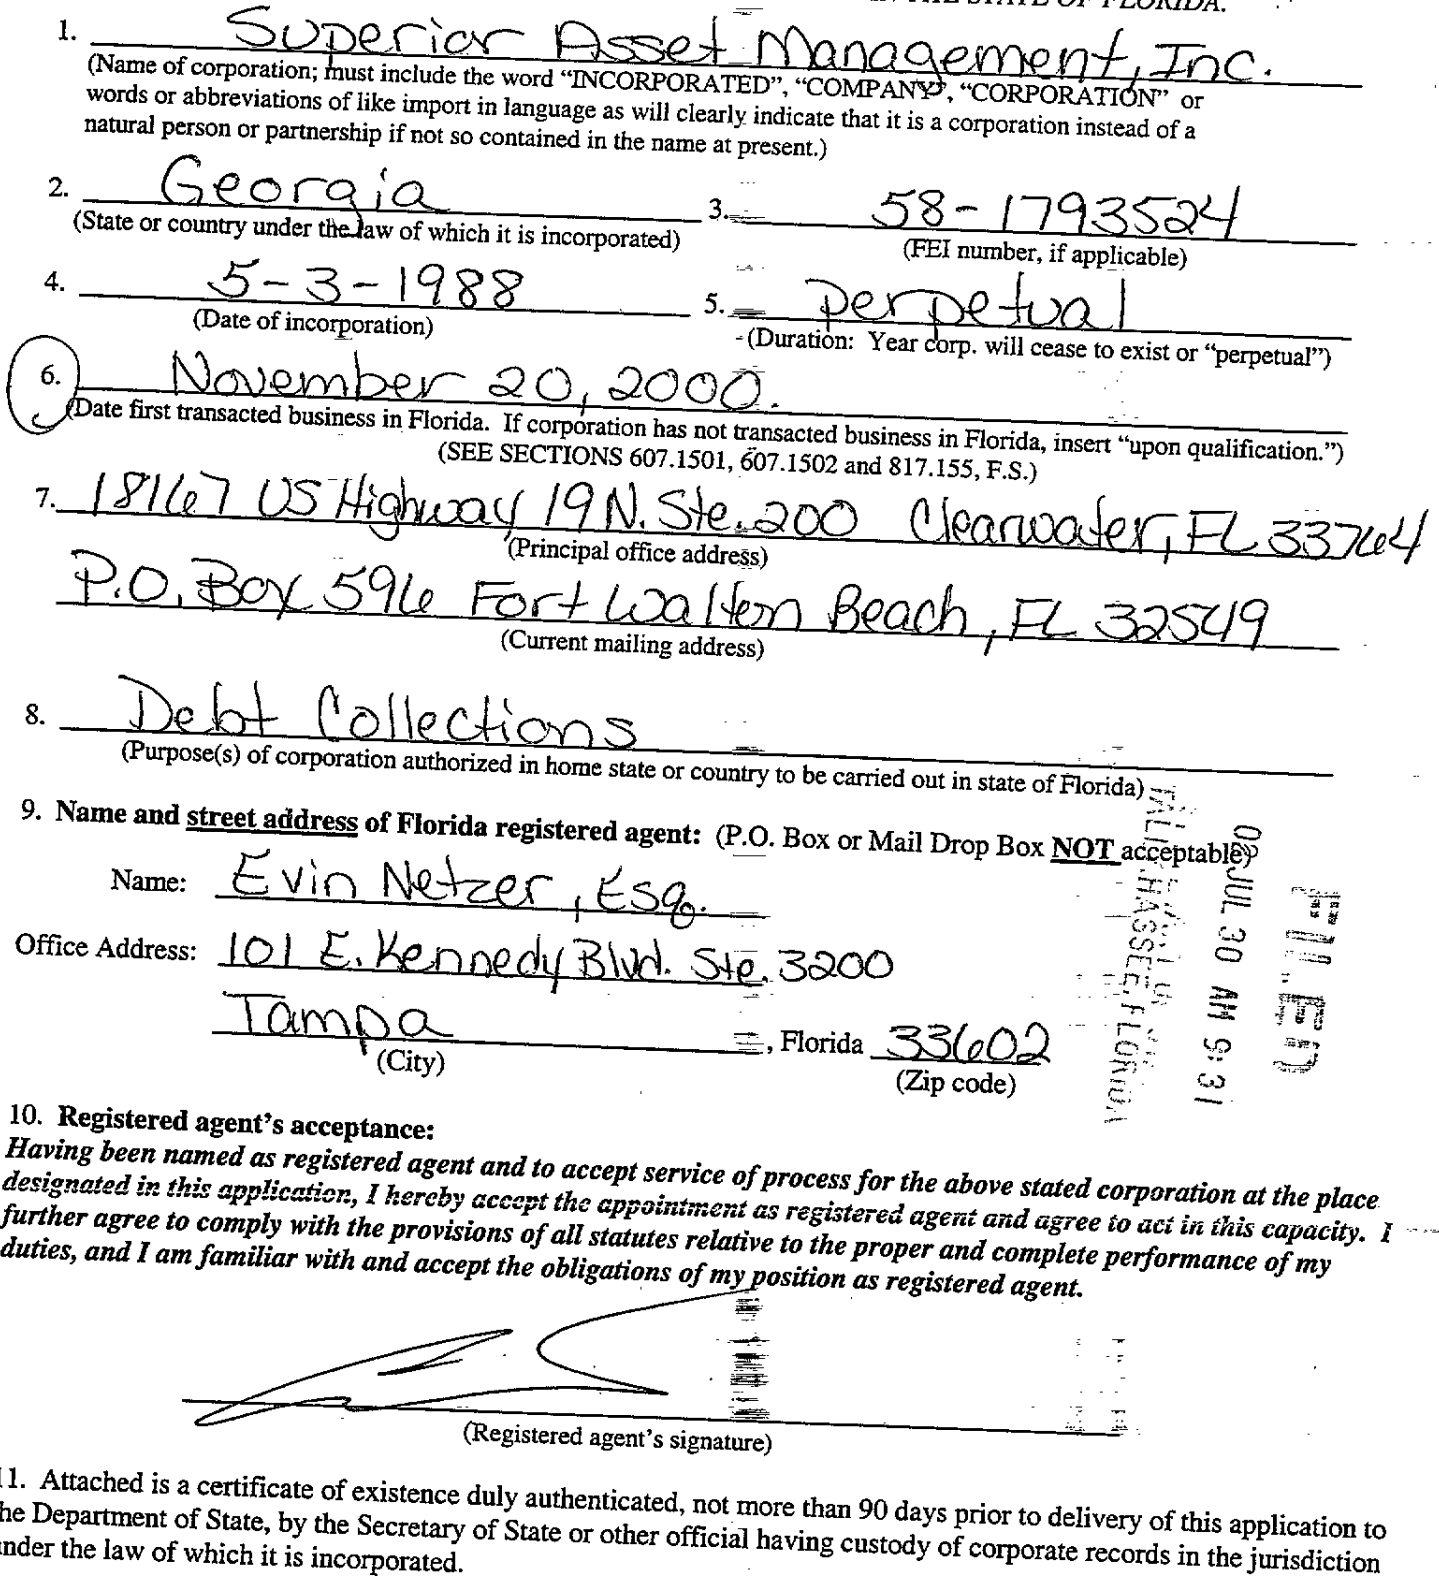 THE STATE OF FLORIDA.
1. Superior Asset Management, Inc.
(Name of corporation; must include the word “INCORPORATED”, “COMPANY”, “CORPORATION” or
words or abbreviations of like import in language as will clearly indicate that it is a corporation instead of a
natural person or partnership if not so contained in the name at present.)
2. Georgia 3. 58-1793524
(State or country under the law of which it is incorporated) (FEI number, if applicable)
4. 5-3-1988 5. perpetual
(Date of incorporation) (Duration: Year corp. will cease to exist or “perpetual”)
6. November 20, 2000.
(Date first transacted business in Florida. If corporation has not transacted business in Florida, insert “upon qualification.”)
(SEE SECTIONS 607.1501, 607.1502 and 817.155, F.S.)
7. 18167 US Highway 19 N. Ste. 200 Clearwater, FL 33764
(Principal office address)
P.O. Box 596 Fort Walton Beach, FL 32549
(Current mailing address)
8. Debt Collections
(Purpose(s) of corporation authorized in home state or country to be carried out in state of Florida)
9. Name and street address of Florida registered agent: (P.O. Box or Mail Drop Box NOT acceptable)
Name: Evin Netzer, Esq.
Office Address: 101 E. Kennedy Blvd. Ste. 3200
Tampa, Florida 33602
(City) (Zip code)
FILED
JUL 30 AM 9:31
FLORIDA
10. Registered agent’s acceptance:
Having been named as registered agent and to accept service of process for the above stated corporation at the place
designated in this application, I hereby accept the appointment as registered agent and agree to act in this capacity. I
further agree to comply with the provisions of all statutes relative to the proper and complete performance of my
duties, and I am familiar with and accept the obligations of my position as registered agent.
(Registered agent’s signature)
11. Attached is a certificate of existence duly authenticated, not more than 90 days prior to delivery of this application to
he Department of State, by the Secretary of State or other official having custody of corporate records in the jurisdiction
nder the law of which it is incorporated.